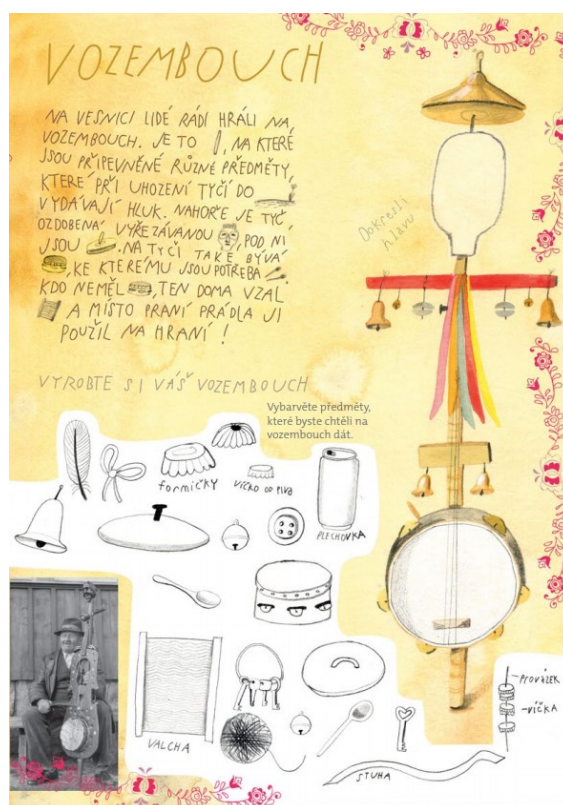 VOZEMBOUCH
NA VESNICI LIDÉ RÁDI HRÁLI NA
VOZEMBOUCH. JE TO , NA KTERÉ
JSOU PŘIPEVNĚNÉ RŮZNÉ PŘEDMĚTY,
KTERÉ PŘI UHOZENÍ TYČÍ DO
VYDÁVAJÍ HLUK. NAHOŘE JE TYČ
OZDOBENÁ VYŘEZÁVANOU , POD NÍ
JSOU . NA TYČI TAKÉ BÝVÁ
, KE KTERÉMU JSOU POTŘEBA
KDO NEMĚL , TEN DOMA VZAL
A MÍSTO PRANÍ PRÁDLA JI
POUŽIL NA HRANÍ !
Dokresli
hlavu
VYROBTE SI VÁŠ VOZEMBOUCH
Vybarvěte předměty,
které byste chtěli na
vozembouch dát.
formičky
VÍČKO OD PIVA
PLECHOVKA
VALCHA
STUHA
PROVÁZEK
VÍČKA